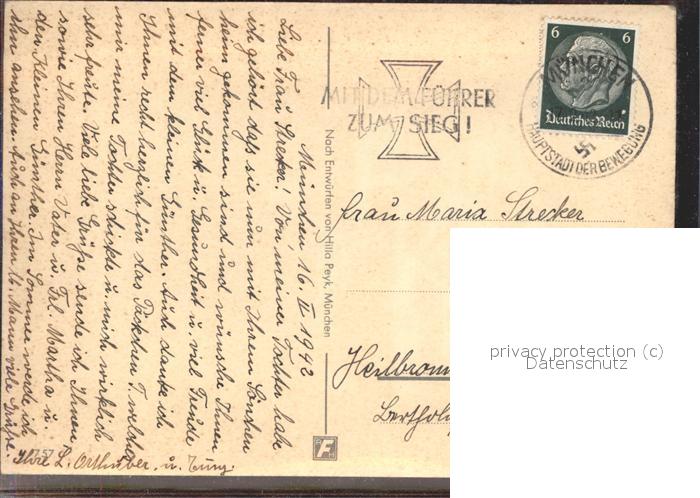 München 16. II 1942
Liebe Frau Strecker! Von meiner Tochter habe
ich gehört daß sie nun mit Ihrem Söhnchen
heim gekommen sind und wünsche Ihnen
ferner viel Glück u. Gesundheit u. viel Freude
mit dem kleinen Günther. Auch danke ich
Ihnen recht herzlich für das Päckchen welches
mir meine Tochter schickte u. mich wirklich
sehr freute. Viele liebe Grüße sende ich Ihnen
sowie Ihren Herrn Vater u. Frl. Martha u.
den Kleinen Günther. Im Sommer werde ich
ihn ansehen. Auch an Ihren lb. Mann viele Grüße.
Ihre L. Orthuber. u.
Nach Entwürfen von Hilla Peyk, München
MIT DEM FÜHRER
ZUM SIEG!
6 6
Deutsches Reich
MÜNCHEN
HAUPTSTADT DER BEWEGUNG
Frau Maria Strecker
Heilbronn
privacy protection (c)
Datenschutz
F